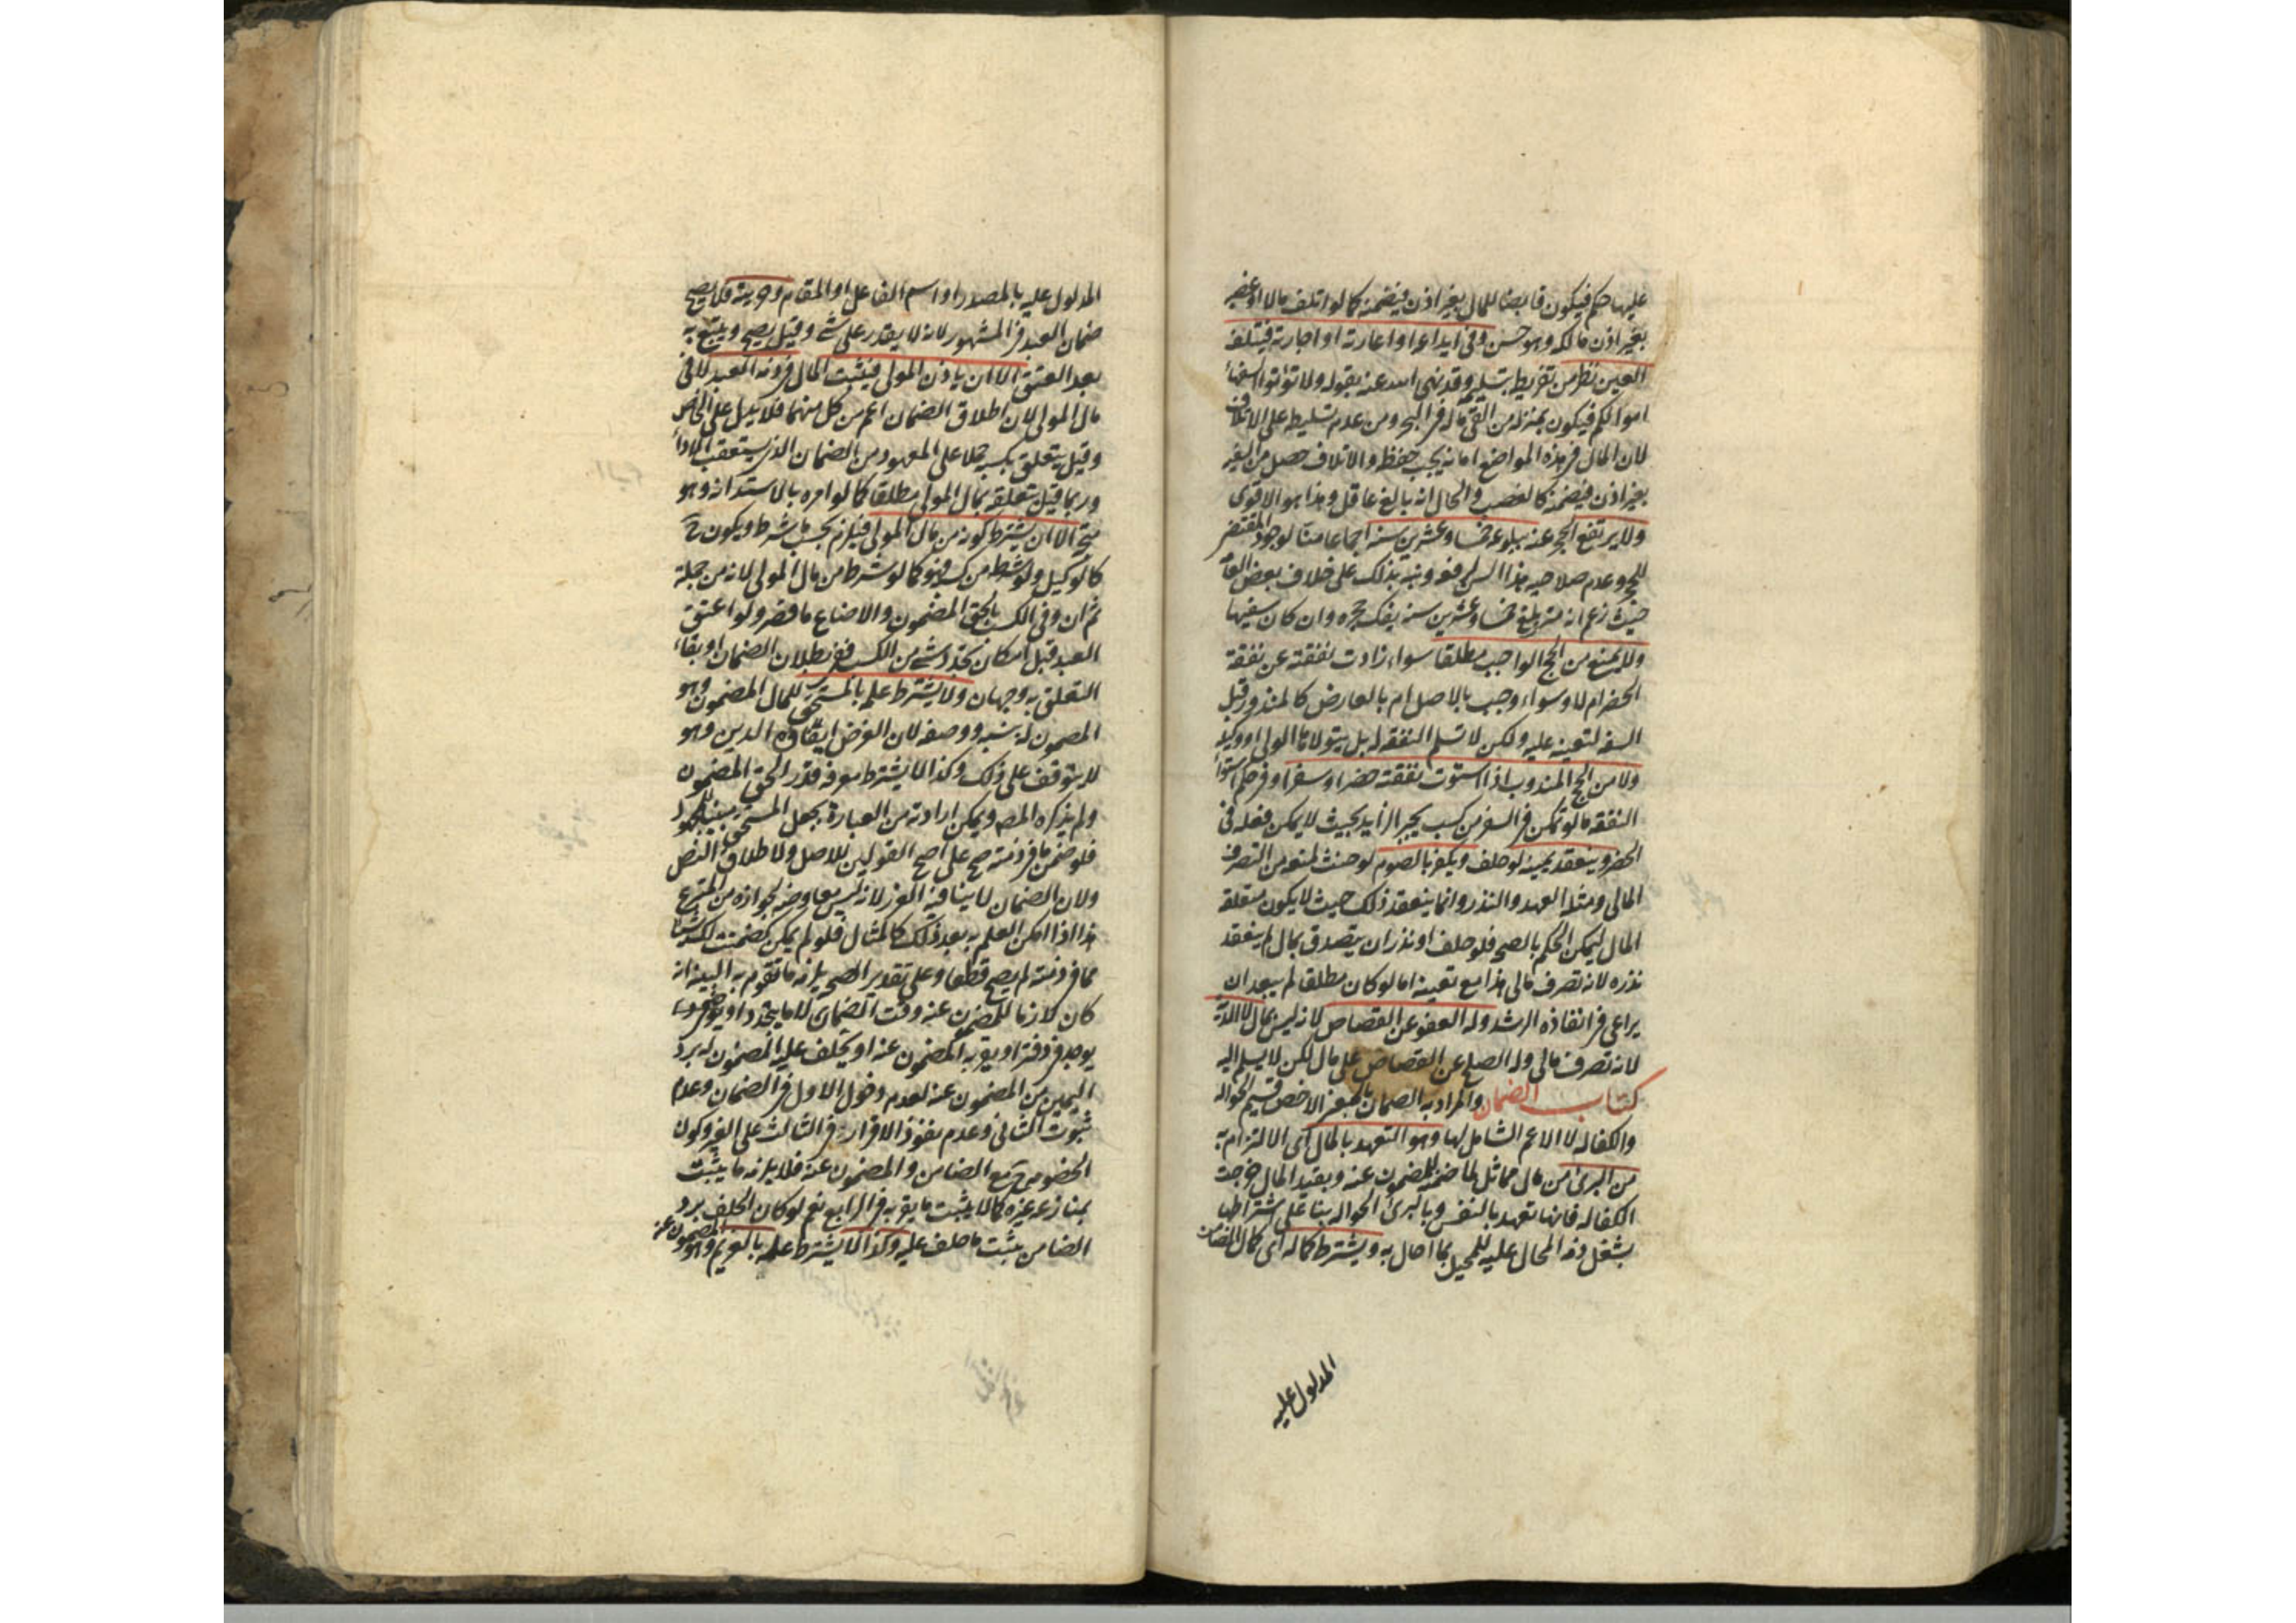 عليها حكم فيكون قابضا للمال بغير اذن فيضمنه كما لو اتلف مالا او غصبه
بغير اذن مالكه وهو حسن وفي ايداعه او اعارته او اجارته فيتلف
العين نظر من تفريطه بتسليمه وقد نهى الله عنه بقوله ولا تؤتوا السفهاء
اموالكم فيكون بمنزلة من القى ماله في البحر ومن عدم تسليطه على الاتلاف
لان المال في هذه المواضع امانة يجب حفظه والاتلاف حصل من السفيه
بغير اذن فيضمنه كالغصب والحال انه بالغ عاقل وهذا هو الاقوى
ولا يرتفع الحجر عنه ببلوغه خمسا وعشرين سنة اجماعا منا لوجود المقتضي
للحجر وعدم صلاحية هذا السن لرفعه ونبه بذلك على خلاف بعض العامة
حيث زعم انه متى بلغ خمسا وعشرين سنة يفك حجره وان كان سفيها
ولا يمنع من الحج الواجب مطلقا سواء زادت نفقته عن نفقة
الحضر ام لا وسواء وجب بالاصل ام بالعارض كالمنذور قبل
السفه لتعينه عليه ولكن لا تسلم النفقة له بل يتولاها الولي او وكيله
ولا من الحج المندوب اذا استوت نفقته حضرا وسفرا وفي حكم استواء
النفقة ما لو تمكن في السفر من كسب يجبر الزايد بحيث لا يمكن فعله في
الحضر وينعقد يمينه لو حلف ويكفر بالصوم لو حنث لمنعه من التصرف
المالي ومثله العهد والنذر وانما ينعقد ذلك حيث لا يكون متعلقه
المال ليمكن الحكم بالصحة فلو حلف او نذر ان يتصدق بمال لم ينعقد
نذره لانه تصرف مالي هذا مع تعينه اما لو كان مطلقا لم يبعد ان
يراعى في انفاذه الرشد وله العفو عن القصاص لانه ليس بمال لا الدية
لانه تصرف مالي وله الصلح عن القصاص على مال لكن لا يسلم اليه
كتاب الضمان والمراد به الضمان بالمعنى الاخص قسيم الحوالة
والكفالة لا الاعم الشامل لها وهو التعهد بالمال اي الالتزام به
من البرئ من مال مماثل لما ضمنه للمضمون عنه وبقيد المال خرجت
الكفالة فانها تعهد بالنفس وبالبرئ الحوالة بناء على اشتراطها
بشغل ذمة المحال عليه للمحيل بما احال به ويشترط كماله اي كمال الضامن
المدلول عليه
المدلول عليه بالمصدر او اسم الفاعل او المقام وحريته فلا يصح
ضمان العبد في المشهور لانه لا يقدر على شئ وقيل يصح ويتبع به
بعد العتق الا ان ياذن المولى فيثبت المال في ذمة العبد لا في
مال المولى لان اطلاق الضمان اعم من كل منهما فلا يدل على الخاص
وقيل يتعلق بكسبه حملا على المعهود من الضمان الذي يستعقب الاداء
وربما قيل بتعلقه بمال المولى مطلقا كما لو امره بالاستدانة وهو
متجه الا ان يشترط كونه من مال المولى فيلزم بحسب ما شرط ويكون ح
كالوكيل ولو شرطه من كسبه فهو كما لو شرطه من مال المولى لانه من جملته
ثم ان وفى الكسب بالحق المضمون والا ضاع ما قصر ولو اعتق
العبد قبل امكان تجدد شئ من الكسب ففي بطلان الضمان او بقاء
التعلق به وجهان ولا يشترط علمه بالمستحق للمال المضمون وهو
المضمون له بنسبه ووصفه لان الغرض ايفاؤه الدين وهو
لا يتوقف على ذلك وكذا لا يشترط معرفة قدر الحق المضمون
ولم يذكره المصه ويمكن ارادته من العبارة بجعل المستحق مبنيا للمجهول
فلو ضمن ما في ذمته صح على اصح القولين للاصل ولاطلاق النص
ولان الضمان لا ينافيه الغرر لانه ليس معاوضة لجوازه من المتبرع
هذا اذا امكن العلم به بعد ذلك كالمثال فلو لم يمكن كضمنت لك شيئا
مما في ذمته لم يصح قطعا وعلى تقدير الصحة يلزمه ما تقوم به البينة انه
كان لازما للمضمون عنه وقت الضمان لا ما يتجدد او
يوجد في دفتر او يقر به المضمون عنه او يحلف عليه المضمون له برد
اليمين من المضمون عنه لعدم دخول الاول في الضمان وعدم
ثبوت الثاني وعدم نفوذ الاقرار في الثالث على الغير وكون
الخصومة ح مع الضامن والمضمون عنه فلا يلزمه ما يثبت
بمنازعة غيره كما لا يثبت ما يقر به في الرابع نعم لو كان الحلف برد
الضامن يثبت ما حلف عليه وكذا لا يشترط علمه بالغريم وهو المضمون عنه